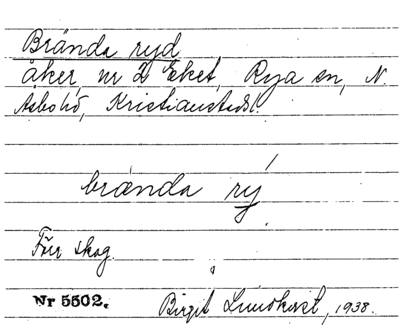 Brända ryd
åker, nr 2 Eket, Rya sn, N.
Åsbo hd, Kristianstads l.
brända rý
Förr skog.
Nr 5502. Birgit Lundkvist, 1938.